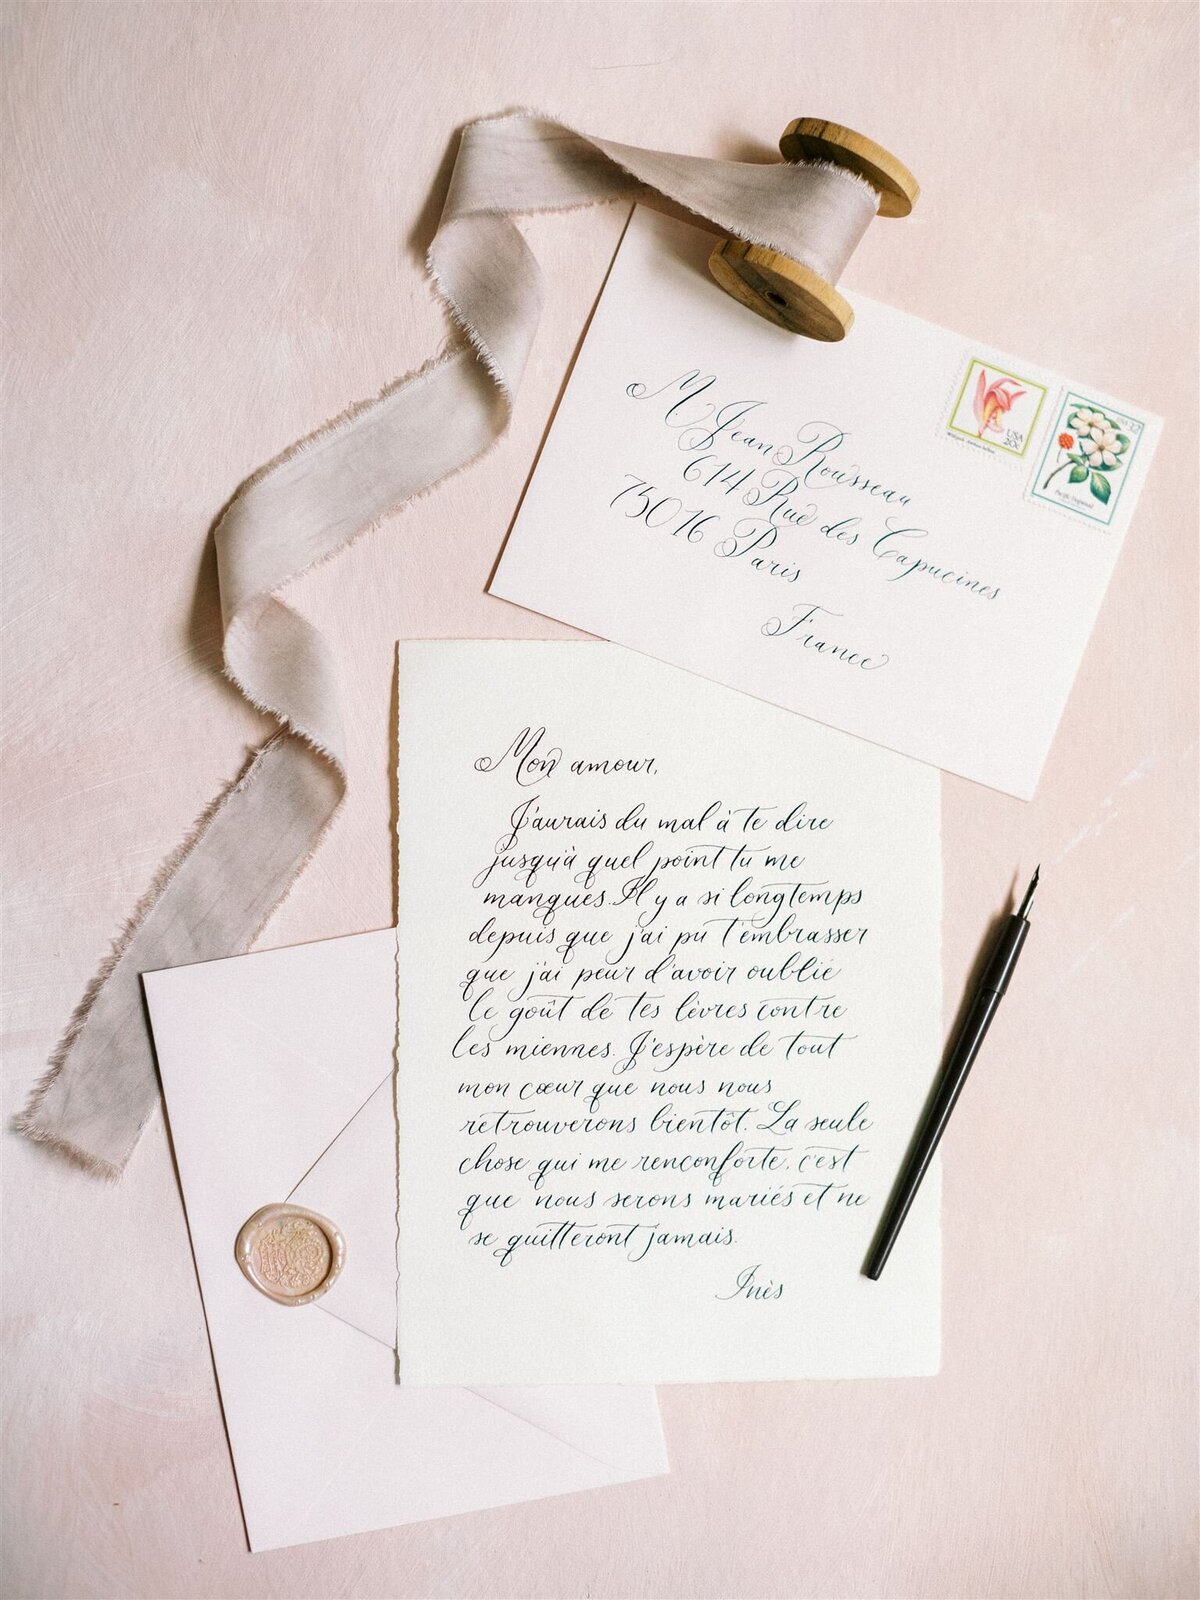 M Jean Rousseau
614 Rue des Capucines
75016 Paris
France
USA
20c
USA 32
Pacific Dogwood
Mon amour,
J'aurais du mal à te dire
jusqu'à quel point tu me
manques. Il y a si longtemps
depuis que j'ai pu t'embrasser
que j'ai peur d'avoir oublié
le goût de tes lèvres contre
les miennes. J'espère de tout
mon cœur que nous nous
retrouverons bientôt. La seule
chose qui me renconforte, c'est
que nous serons mariés et ne
se quitteront jamais.
Inès